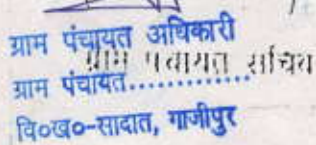 ग्राम पंचायत अधिकारी
ग्राम पंचायत सचिव
ग्राम पंचायत.............
वि०ख०-सादात, गाजीपुर